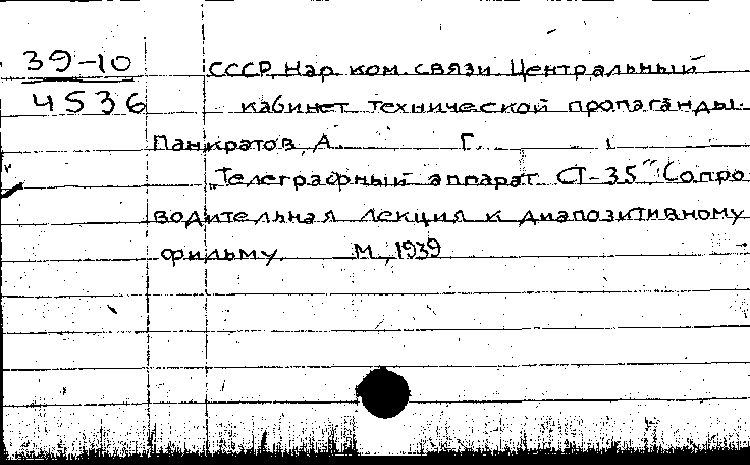 39-10 СССР. Нар. ком. связи. Центральный
4536 кабинет технической пропаганды.
Панкратов, А. Г.
"Телеграфный аппарат СТ-35". Сопро
водительная лекция к диапозитивному
фильму. М., 1939